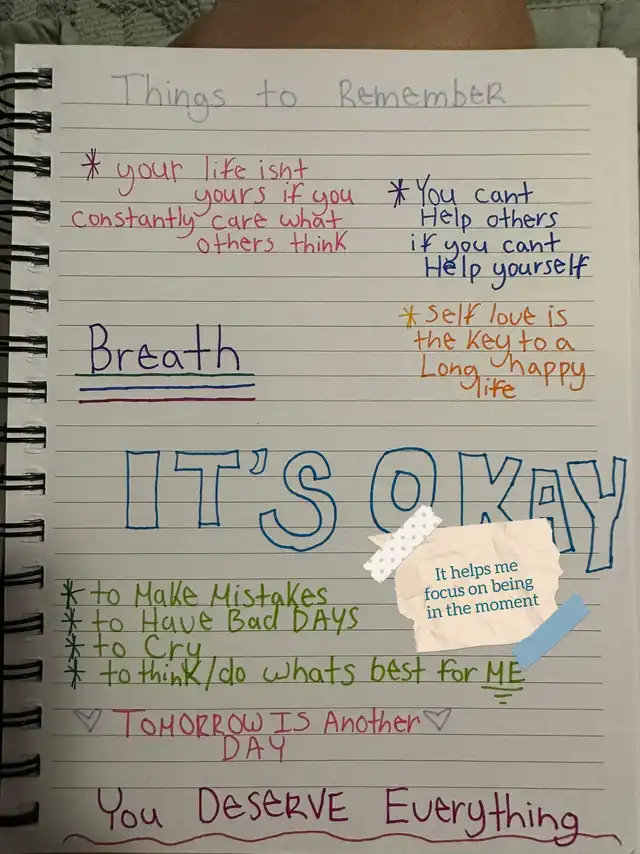 Things to Remember
* your life isnt
yours if you
constantly care what
others think
* You cant
Help others
if you cant
Help yourself
* Self love is
the key to a
Long happy
life
Breath
IT'S OKAY
It helps me
focus on being
in the moment
* to Make Mistakes
* to Have Bad DAYS
* to Cry
* to think/do whats best for ME
TOMORROW IS Another
DAY
You DESERVE Everything